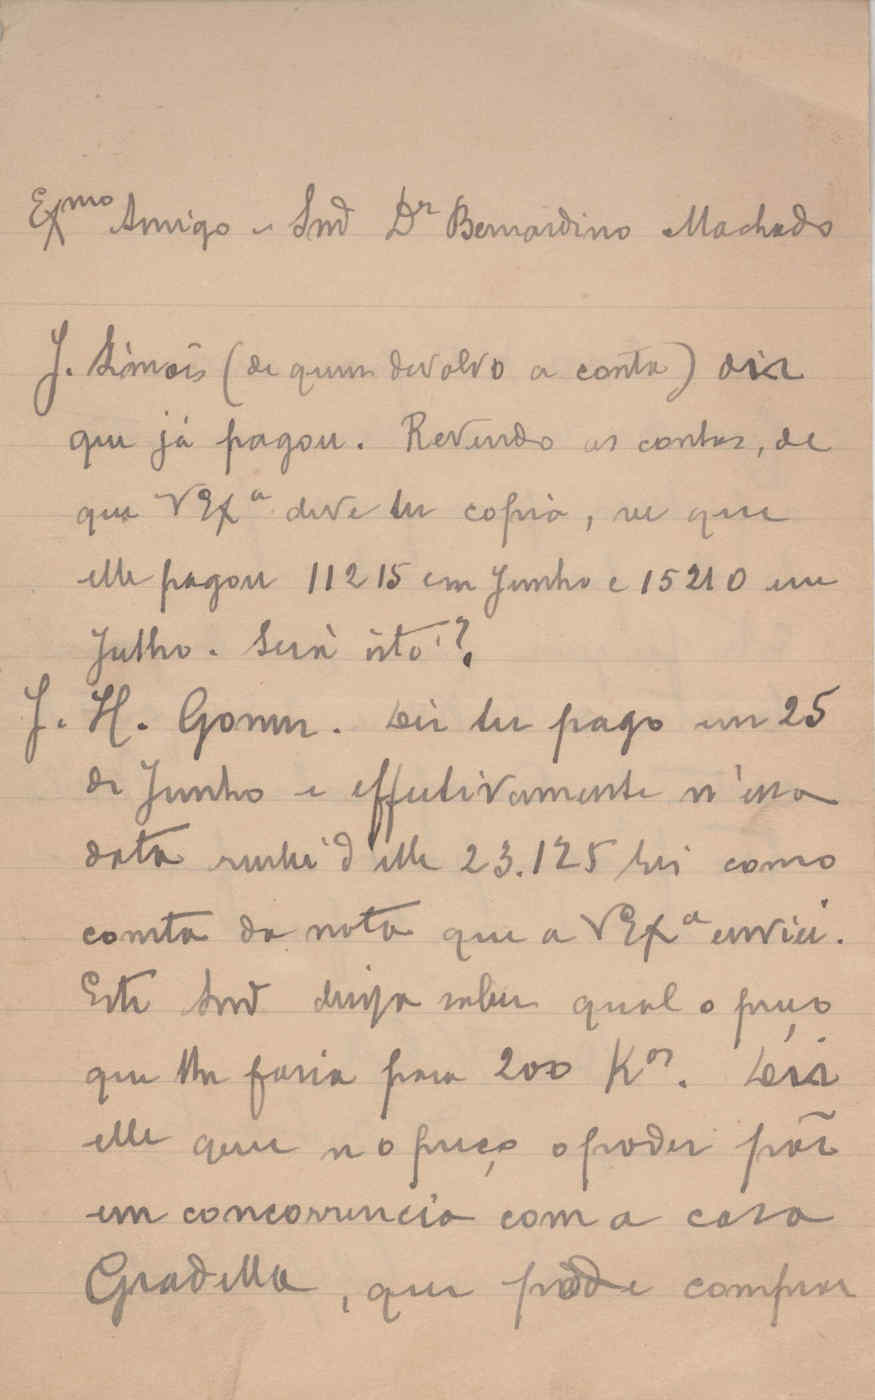 Exmo Amigo e Snr Dr Bernardino Machado
J. Simões (de quem devolvo a conta) diz
que já pagou. Revendo as contas, de
que VExa deve ter copia, vê que
elle pagou 11215 em Junho e 15210 em
Julho. Será isto?
J. H. Gomes. Diz ter pago em 25
de Junho e effectivamente n'essa
data recebi d'elle 23.125 reis como
consta da nota que a VExa enviei.
Este Snr deseja saber qual o preço
que lhe faria para 200 Kos. Diz
elle que no preço o poder pôr
em concorrencia com a casa
Gradella, que pode comprar